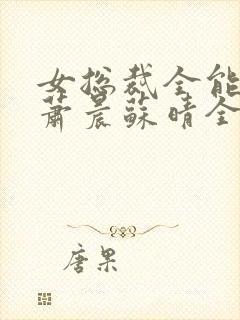 女总裁全能
萧晨苏晴全
唐果